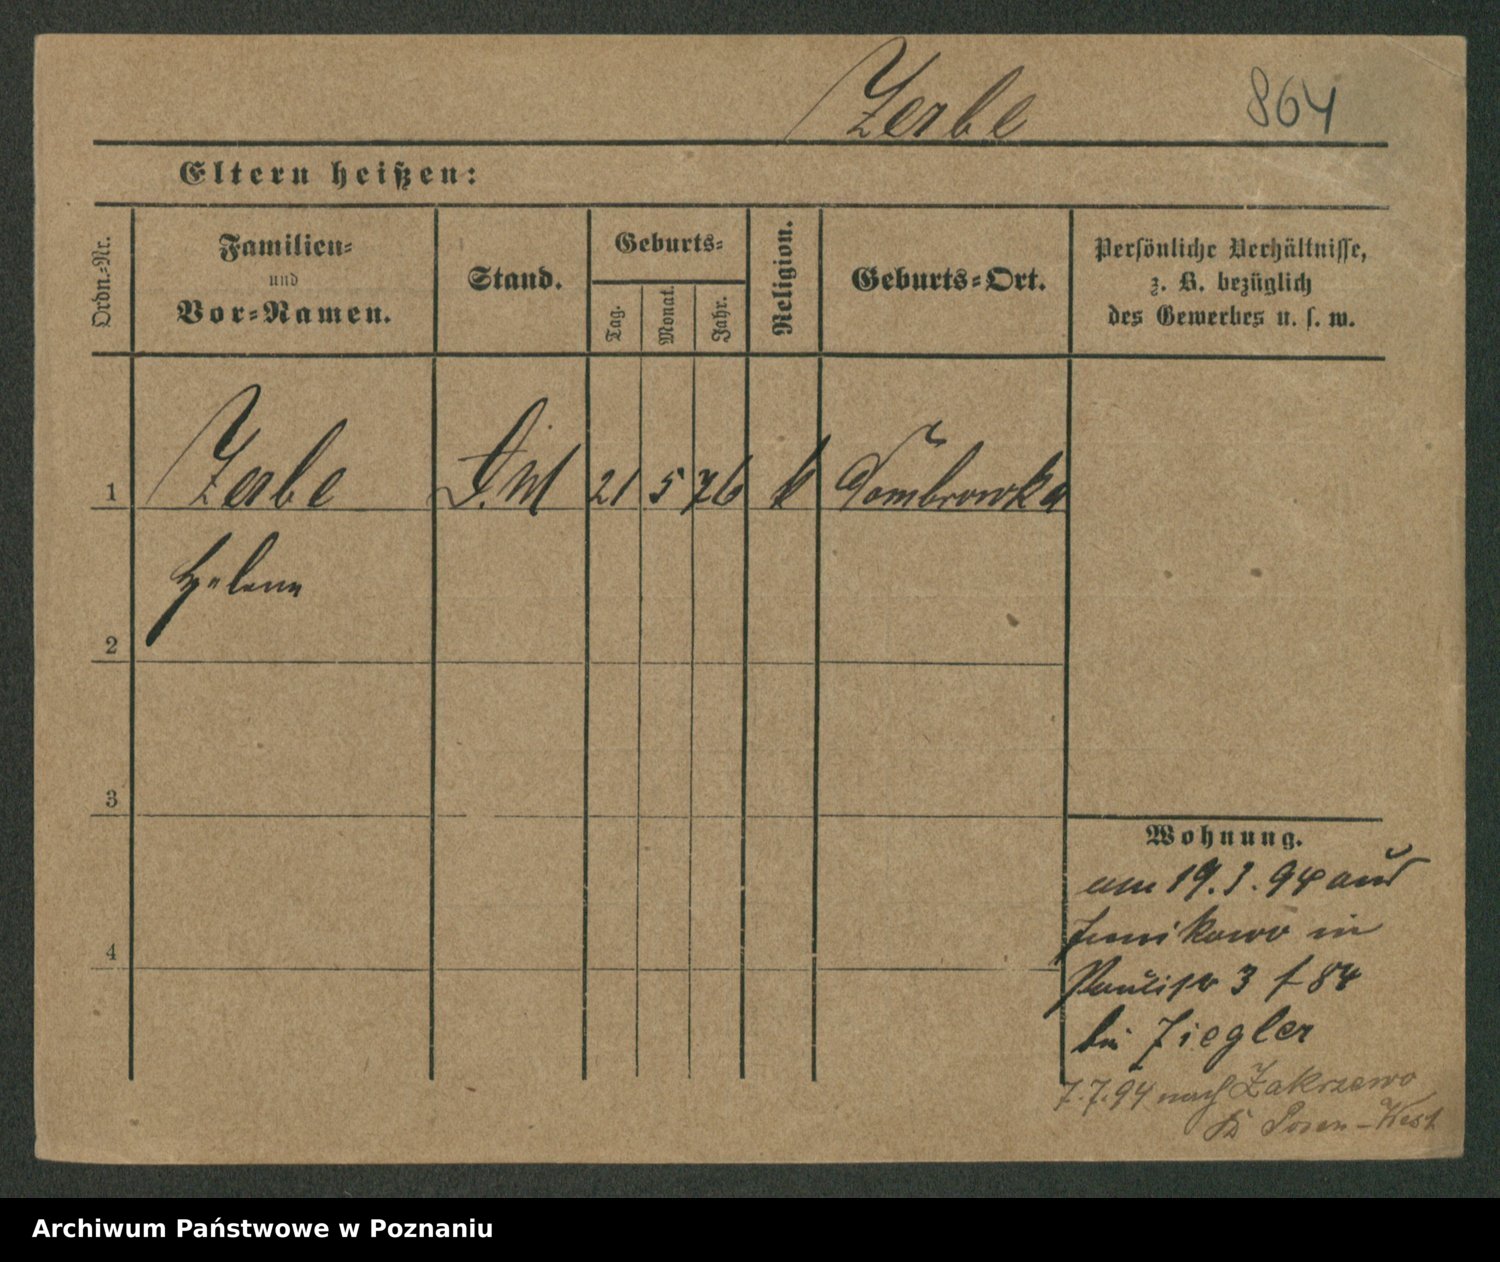 Zerbe 864
Eltern heißen:
Ordn.-Nr.
Familien-
und
Vor-Namen.
Stand.
Geburts-
Tag.
Monat.
Jahr.
Religion.
Geburts-Ort.
Persönliche Verhältnisse,
z. B. bezüglich
des Gewerbes u. s. w.
1 Zerbe D.M 21 5 76 k Dombrowka
Helene
2
3
4
Wohnung.
am 19. 3. 94 aus
Junikowo in
3 f 84
bei Ziegler
7.7.94 nach Zakrzewo
Posen-West
Archiwum Państwowe w Poznaniu